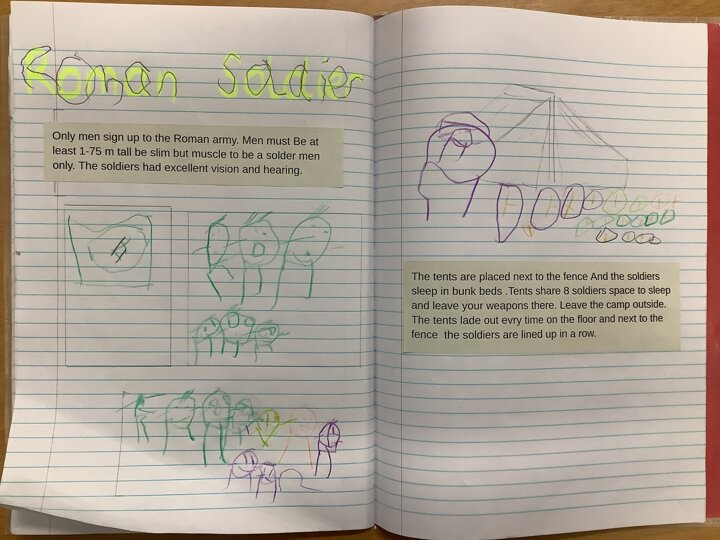 Roman Soldier
Only men sign up to the Roman army. Men must Be at
least 1-75 m tall be slim but muscle to be a solder men
only. The soldiers had excellent vision and hearing.
The tents are placed next to the fence And the soldiers
sleep in bunk beds .Tents share 8 soldiers space to sleep
and leave your weapons there. Leave the camp outside.
The tents lade out evry time on the floor and next to the
fence the soldiers are lined up in a row.